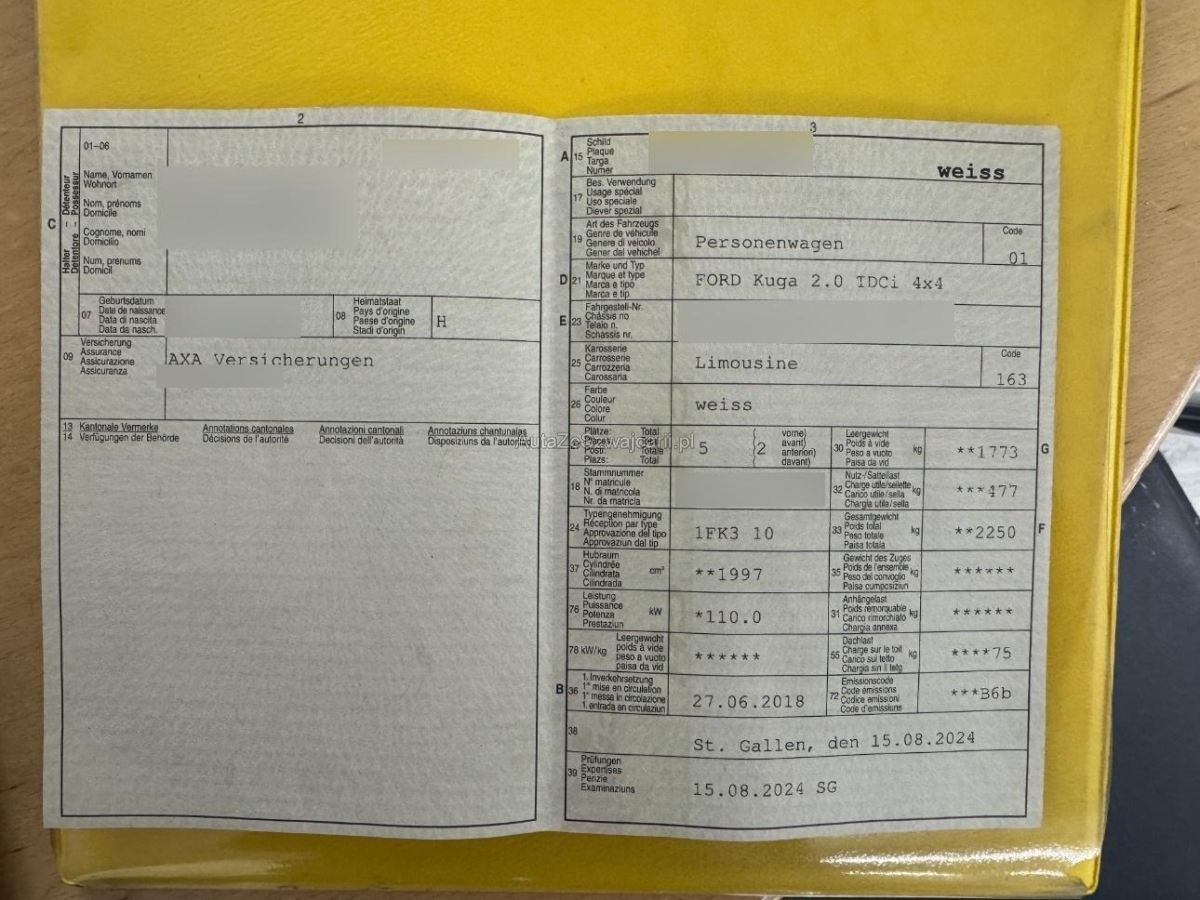 2
01–06
Name, Vornamen
Wohnort
Nom, prénoms
Domicile
Cognome, nomi
Domicilio
Num, prenums
Domicil
C
Halter – Détenteur
Detentore – Possessur
07
Geburtsdatum
Date de naissance
Data di nascita
Data da nasch.
08
Heimatstaat
Pays d'origine
Paese d'origine
Stadi d'origin
H
09
Versicherung
Assurance
Assicurazione
Assicuranza
AXA Versicherungen
13 Kantonale Vermerke Annotations cantonales Annotazioni cantonali Annotaziuns chantunalas
14 Verfügungen der Behörde Décisions de l'autorité Decisioni dell'autorità Disposiziuns da l'autoritad
3
A 15
Schild
Plaque
Targa
Numer
weiss
17
Bes. Verwendung
Usage spécial
Uso speciale
Diever spezial
19
Art des Fahrzeugs
Genre de véhicule
Genere di veicolo
Gener dal vehichel
Personenwagen
Code
01
D 21
Marke und Typ
Marque et type
Marca e tipo
Marca e tip
FORD Kuga 2.0 TDCi 4x4
E 23
Fahrgestell-Nr.
Châssis no
Telaio n.
Schassis nr.
25
Karosserie
Carrosserie
Carrozzeria
Carossaria
Limousine
Code
163
26
Farbe
Couleur
Colore
Colur
weiss
AutaZeSzwajcarii.pl
Plätze: Total
Places: Total
Posti: Totale
Plazs: Total
5
2
vorne)
avant)
anteriori)
davant)
30
Leergewicht
Poids à vide
Peso a vuoto
Paisa da vid
kg
**1773
G
18
Stammnummer
N° matricule
N. di matricola
Nr. da matricla
32
Nutz-/Sattellast
Charge utile/sellette
Carico utile/sella
Chargia utila/sella
kg
***477
24
Typengenehmigung
Réception par type
Approvazione del tipo
Approvaziun dal tip
1FK3 10
33
Gesamtgewicht
Poids total
Peso totale
Paisa totala
kg
**2250
F
37
Hubraum
Cylindrée
Cilindrata
Cilindrada
cm³
**1997
35
Gewicht des Zuges
Poids de l'ensemble
Peso del convoglio
Paisa cumposiziun
kg
******
76
Leistung
Puissance
Potenza
Prestaziun
kW
*110.0
31
Anhängelast
Poids remorquable
Carico rimorchiato
Chargia annexa
kg
******
78 kW/kg
Leergewicht
poids à vide
peso a vuoto
paisa da vid
******
55
Dachlast
Charge sur le toit
Carico sul tetto
Chargia sin il tetg
kg
****75
B 36
1. Inverkehrsetzung
1re mise en circulation
1a messa in circolazione
1. entrada en circulaziun
27.06.2018
72
Emissionscode
Code émissions
Codice emissioni
Code d'emissiuns
***B6b
38
St. Gallen, den 15.08.2024
39
Prüfungen
Expertises
Perizie
Examinaziuns
15.08.2024 SG